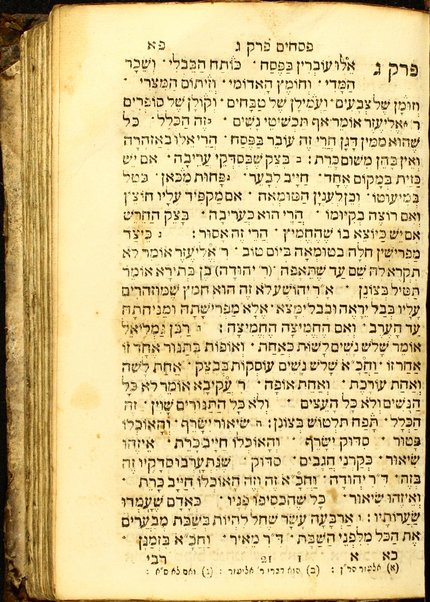 פסחים פרק ג
פא
פרק ג
אלו עוברין בפסח · כותח הבבלי · ושכר
המדי · וחומץ האדומי · וזיתום המצרי ·
וזומן של צבעים · ועמילן של טבחים · וקולן של סופרים
ר׳ אליעזר אומר אף תכשיטי נשים · זה הכלל · כל
שהוא ממין דגן הרי זה עובר בפסח · הרי אלו באזהרה
ואין בהן משום כרת : ב בצק שבסדקי עריבה · אם יש
כזית במקום אחד · חייב לבער · פחות מכאן · בטל
במיעוטו · וכן לענין הטומאה · אם מקפיד עליו חוצץ
ואם רוצה בקיומו · הרי הוא כעריבה · בצק החרש
אם יש כיוצא בו שהחמיץ · הרי זה אסור : ג כיצד
מפרישין חלה בטומאה ביום טוב · ר׳ אליעזר אומר לא
תקרא לה שם עד שתאפה · (ר׳ יהודה) בן בתירא אומר
תטיל בצונן · א״ר יהושע לא זה הוא חמץ שמוזהרים
עליו בבל יראה ובבל ימצא · אלא מפרישתה ומניחתה
עד הערב · ואם החמיצה החמיצה : ד רבן גמליאל
אומר שלש נשים לשות כאחת · ואופות בתנור אחד זו
אחר זו · וחכ״א שלש נשים עוסקות בבצק · אחת לשה
ואחת עורכת · ואחת אופה · ר׳ עקיבא אומר לא כל
הנשים ולא כל העצים · ולא כל התנורים שוין · זה
הכלל · תפח תלטוש בצונן : ה שיאור ישרף · והאוכלו
פטור · סדוק ישרף · והאוכלו חייב כרת · איזהו
שיאור · כקרני חגבים · סדוק · שנתערבו סדקיו זה
בזה · ד״ר יהודה · וחכ״א זה וזה האוכלו חייב כרת ·
ואיזהו שיאור · כל שהכסיפו פניו · כאדם שעמדו
שערותיו : ו ארבעה עשר שחל להיות בשבת מבערים
את הכל מלפני השבת · ד״ר מאיר · וחכ״א בזמנן ·
כא א ז וז רבי
(א) אליעזר סר״ן : (ב) הוא דברי ר׳ אליעזר : (ג) ואם לא ס״א :